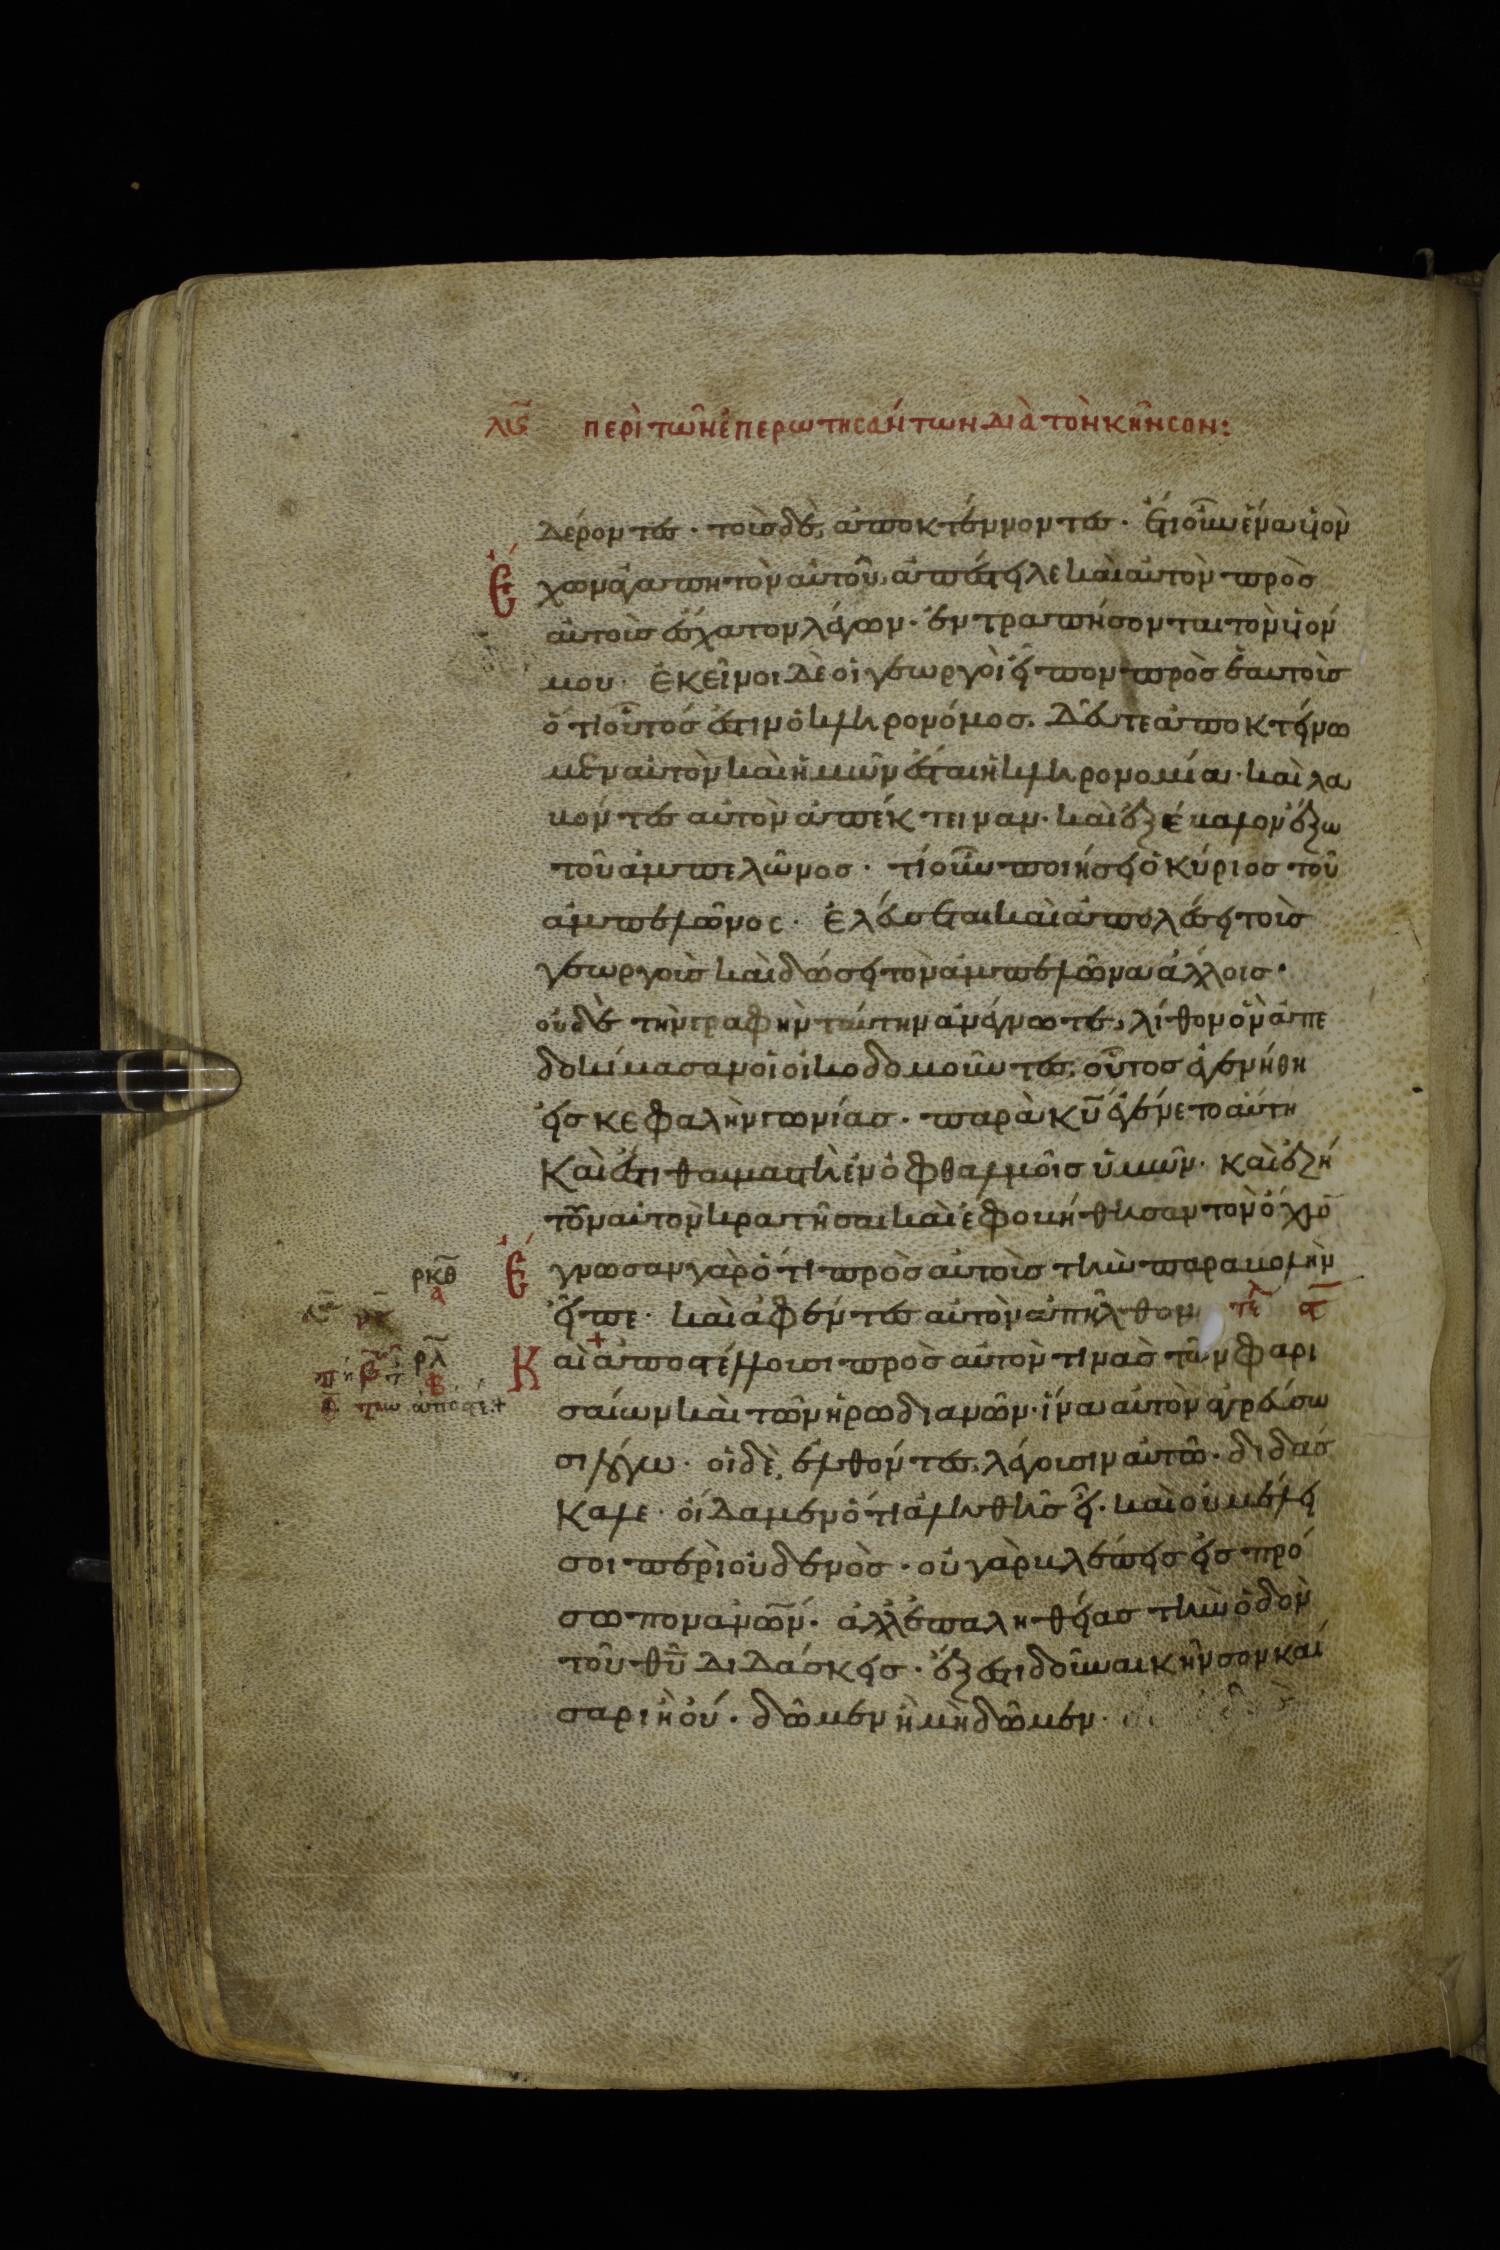 λϛ περὶ τῶν ἐπερωτησάντων διὰ τὸν κῆνσον:
δέροντες · τοὺς δὲ, ἀποκτέννοντες · ἔτι οὖν ἕνα υἱὸν
ἔχων ἀγαπητὸν αὐτοῦ, ἀπέστειλε καὶ αὐτὸν πρὸς
αὐτοὺς ἔσχατον λέγων · ἐντραπήσονται τὸν υἱόν
μου · ἐκεῖνοι δὲ οἱ γεωργοὶ εἶπον πρὸς ἑαυτοὺς
ὅτι οὗτός ἐστιν ὁ κληρονόμος. δεῦτε ἀποκτείνω
μεν αὐτὸν καὶ ἡμῶν ἔσται ἡ κληρονομία · καὶ λα
βόντες αὐτὸν ἀπέκτειναν · καὶ ἐξέβαλον ἔξω
τοῦ ἀμπελῶνος · τί οὖν ποιήσει ὁ κύριος τοῦ
ἀμπελῶνος · ἐλεύσεται καὶ ἀπολέσει τοὺς
γεωργοὺς καὶ δώσει τὸν ἀμπελῶνα ἄλλοις ·
οὐδὲ τὴν γραφὴν ταύτην ἀνέγνωτε, λίθον ὃν ἀπε
δοκίμασαν οἱ οἰκοδομοῦντες, οὗτος ἐγενήθη
εἰς κεφαλὴν γωνίας · παρὰ κυ ἐγένετο αὕτη
καὶ ἔστι θαυμαστὴ ἐν ὀφθαλμοῖς ὑμῶν · καὶ ἐζή
τουν αὐτὸν κρατῆσαι καὶ ἐφοβήθησαν τὸν ὄχλο
ρκθ α ἔγνωσαν γὰρ ὅτι πρὸς αὐτοὺς τὴν παραβολὴν
εἶπε · καὶ ἀφέντες αὐτὸν ἀπῆλθον τέλ
ρλ β καὶ ἀποστέλλουσι πρὸς αὐτὸν τινὰς τῶν φαρι
σαίων καὶ τῶν ἡρωδιανῶν · ἵνα αὐτὸν ἀγρεύσω
σι λόγω · οἱ δὲ, ἐλθόντες, λέγουσιν αὐτῶ · διδάσ
καλε · οἴδαμεν ὅτι ἀληθὴς εἶ · καὶ οὐ μέλει
σοι περὶ οὐδενὸς · οὐ γὰρ βλέπεις εἰς πρό
σωπον ανων · ἀλλ' ἐπ' ἀληθείας τὴν ὁδὸν
τοῦ θυ διδάσκεις · ἔξεστι δοῦναι κῆνσον καί
σαρι ἢ οὐ · δῶμεν ἢ μὴ δῶμεν ·